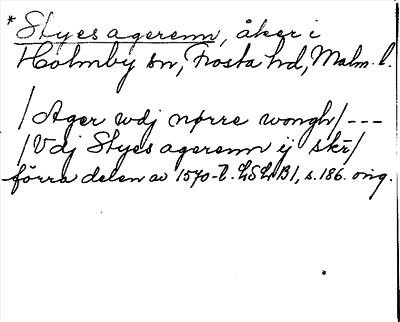 * Styes agerenn, åker i
Holmby sn, Frosta hd, Malm. l.
/Ager wdj nørre wongh/---
/Vdj Styes agerenn ij skr/
förra delen av 1570-t. LSLB1, s. 186. orig.